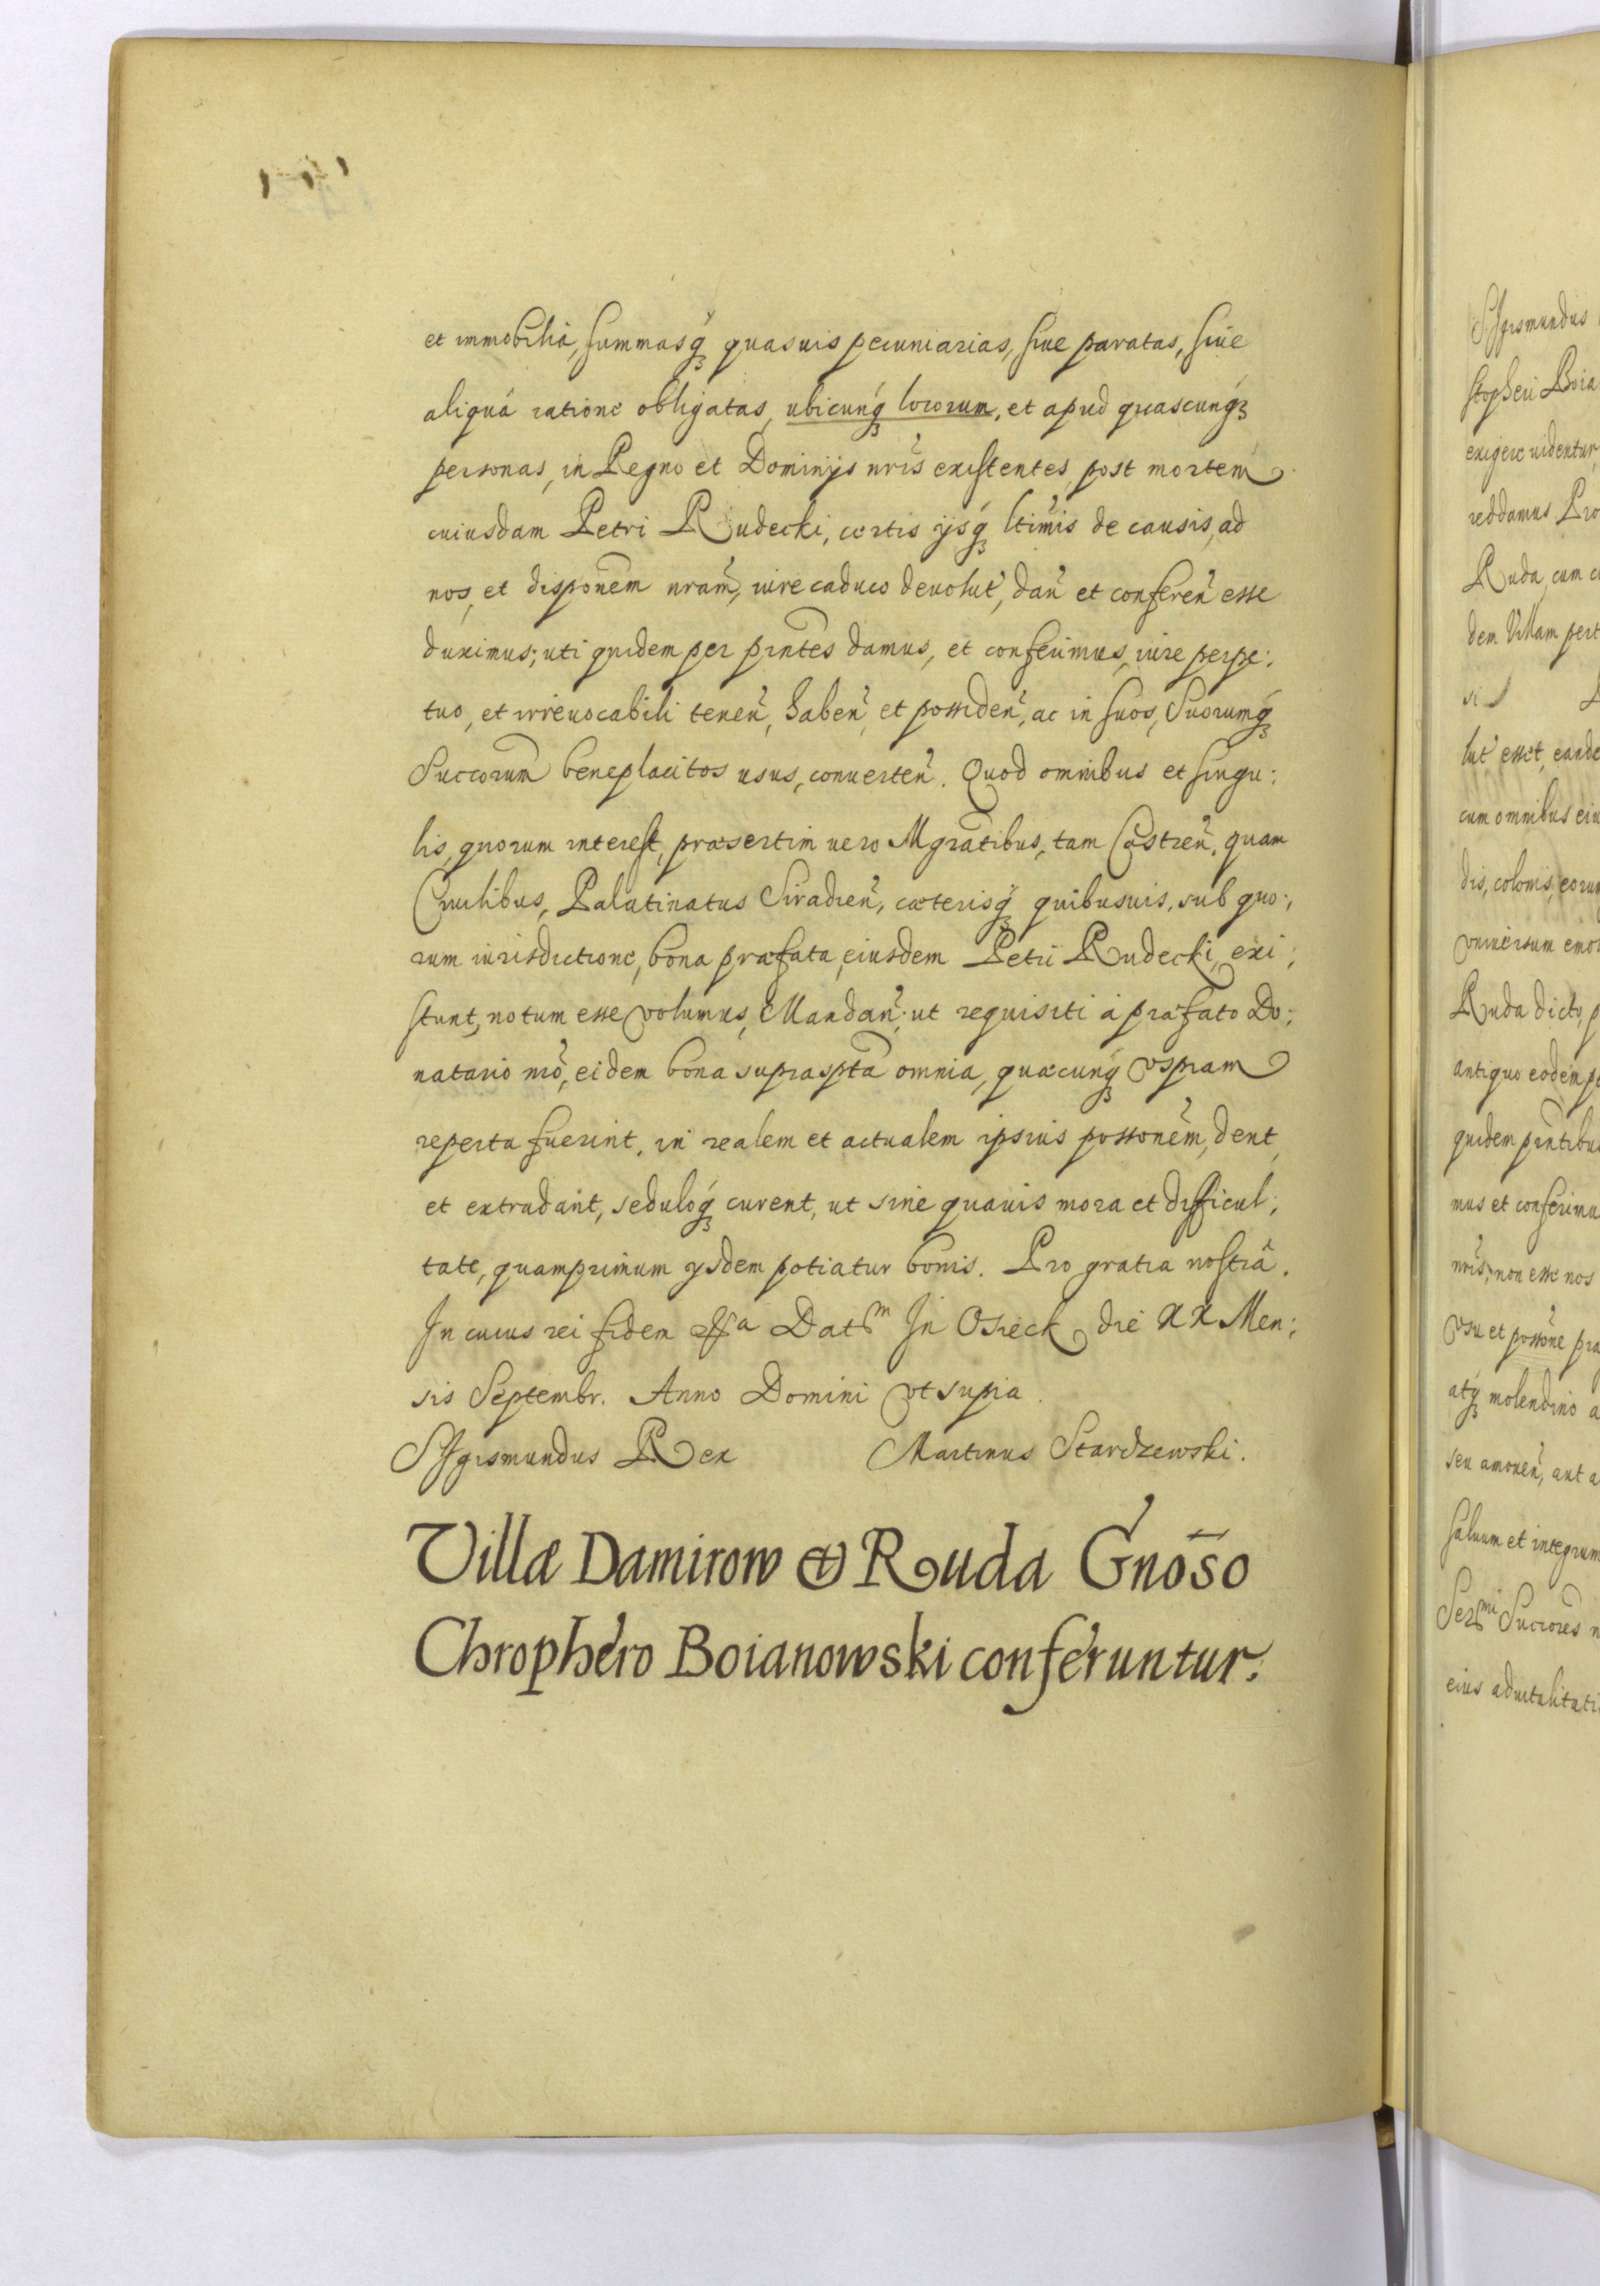 et immobilia, summasq́ꝫ quasuis pecuniarias, siue paratas, siue
aliquá ratione obligatas, ubicunq́ꝫ locorum, et apud quascunq́ꝫ
personas, in Regno et Dominijs nrĩs existentes, post mortem
cuiusdam Petri Rudecki, certis ijsq́ꝫ ltimĩs de causis, ad
nos, et disponẽm nram̃, iure caduco deuolut', dañ et conferen̄ esse
duximus; uti quidem per pr̃ntes damus, et conferimus, iure perpe:
tuo, et irreuocabili teneñ, habeñ, et possideñ, ac in suos, Suorumq́ꝫ
Succorum̃ beneplacitos usus, conuerteñ. Quod omnibus et singu:
lis, quorum interest, præsertim uero Mgratĩbus, tam Castreñ. quam
Ciuilibus, Palatinatus Siradieñ, cæterisq́ꝫ quibusuis, sub quo:
rum iurisdictione, bona præfata, eiusdem Petri Rudecki, exi:
stunt, notum esse volumus, Mandañ; ut requisiti á præfato Do:
natario nrõ, eidem bona suprasptã omnia, quæcunq́ꝫ vspiam
reperta fuerint, in realem et actualem ipsius possonẽm, dent,
et extradant, seduloq́ꝫ curent, ut sine quauis mora et difficul:
tate, quamprimum ijsdem potiatur bonis. Pro gratia nostrâ.
In cuius rei fidem &a Datm In Osieck die XX Men:
sis Septembr. Anno Domini vt supra.
Sigismundus Rex Martinus Stardzewski.
Villæ Damirow et Ruda Gnõso
Chrophero Boianowski conferuntur.
Sigismundus
stopheri Boia
exigere uidentur
reddamus Pro
Ruda, cum
dem Villam pert
si
lut' esset, eande
cum omnibus eiu
dis, colonis, eorum
vniuersum emol
Ruda dicto, p
antiquo eodem po
quidem pr̃ntibus
mus et conferimu
nrĩs; non esse nos
vsu et possõne pra
atq́ꝫ molendino a
seu amoueñ, aut a
saluum et integrum
Sermi Succores n
eius aduitalitati